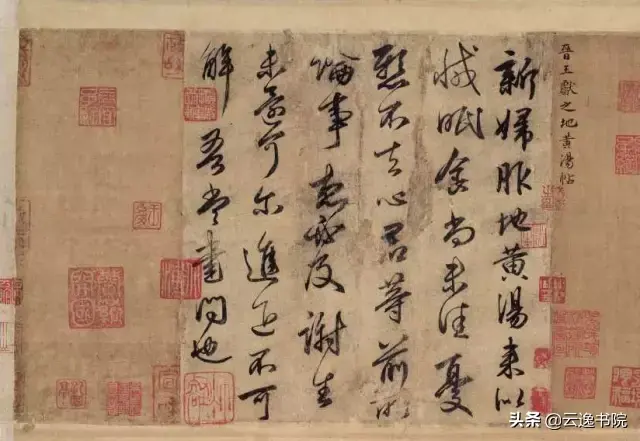 晉王獻之地黄湯帖
新婦服地黄湯来似
減眠食尚未佳憂
懸不去心君等前所
論事想必及謝生
未還可尔進退不可
解吾當書問也
头条 @云逸书院